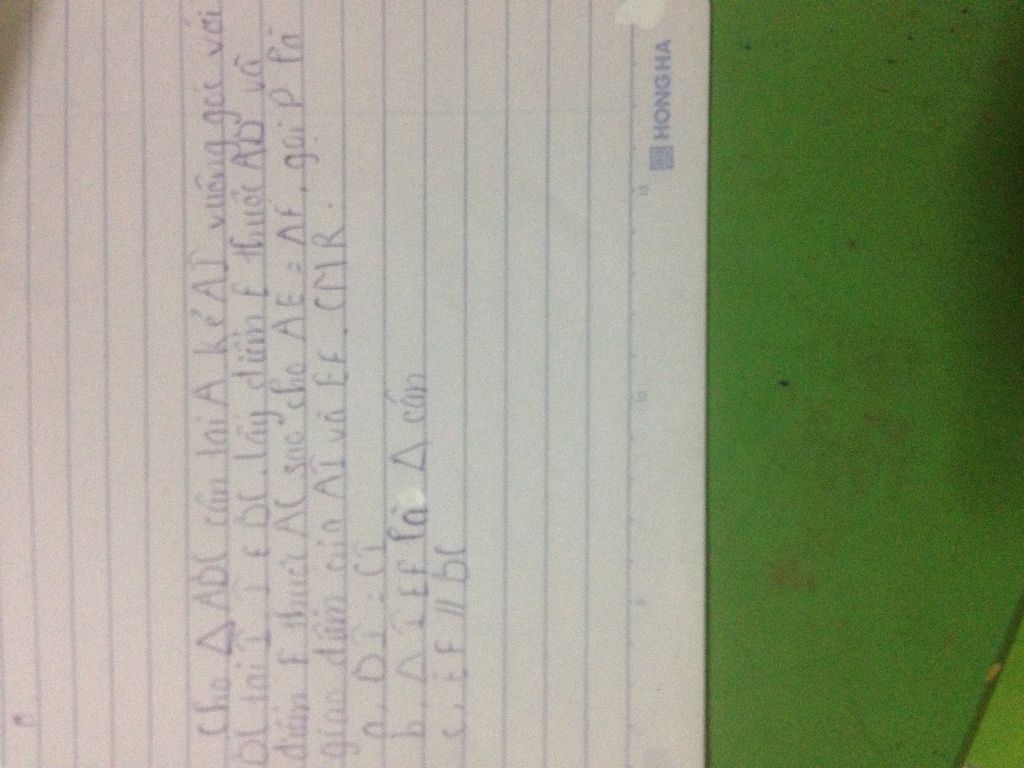 Cho Δ ABC cân tại A kẻ AI vuông góc với
BC tại I, I ∈ BC. lấy điểm E thuộc AB và
điểm F thuộc AC sao cho AE = AF. gọi P là
giao điểm của AI và EF. CMR.
a, BI = CI
b, Δ IEF là Δ cân
c, EF // BC
HONG HA
5
10
15